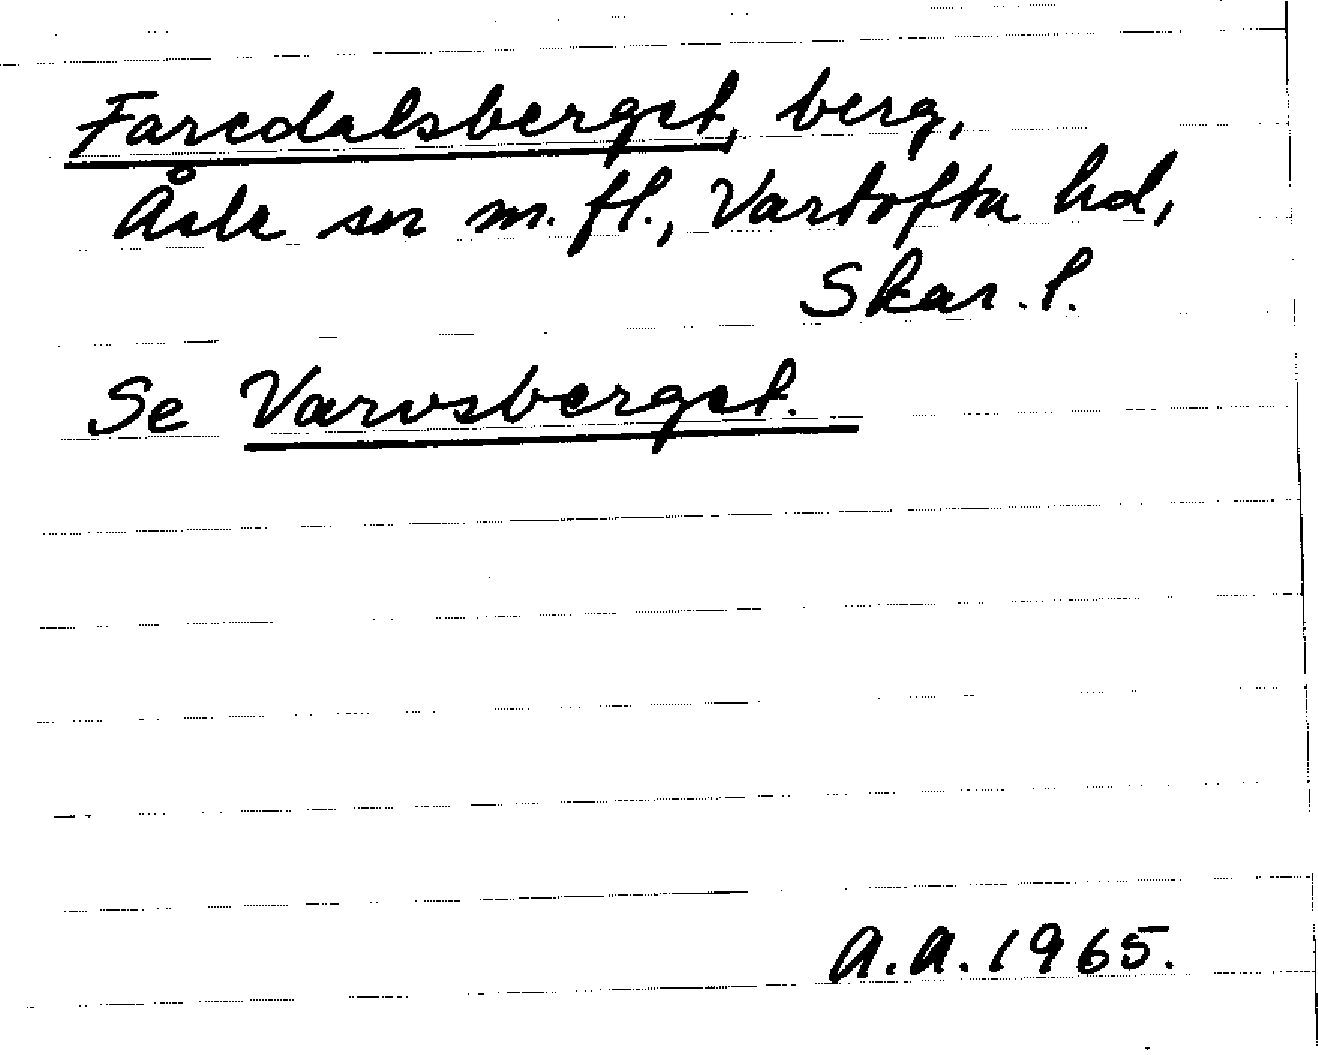 Faredalsberget, berg,
Åsle sn m. fl., Vartofta hd,
Skar. l.
Se Varvsberget.
A.A. 1965.